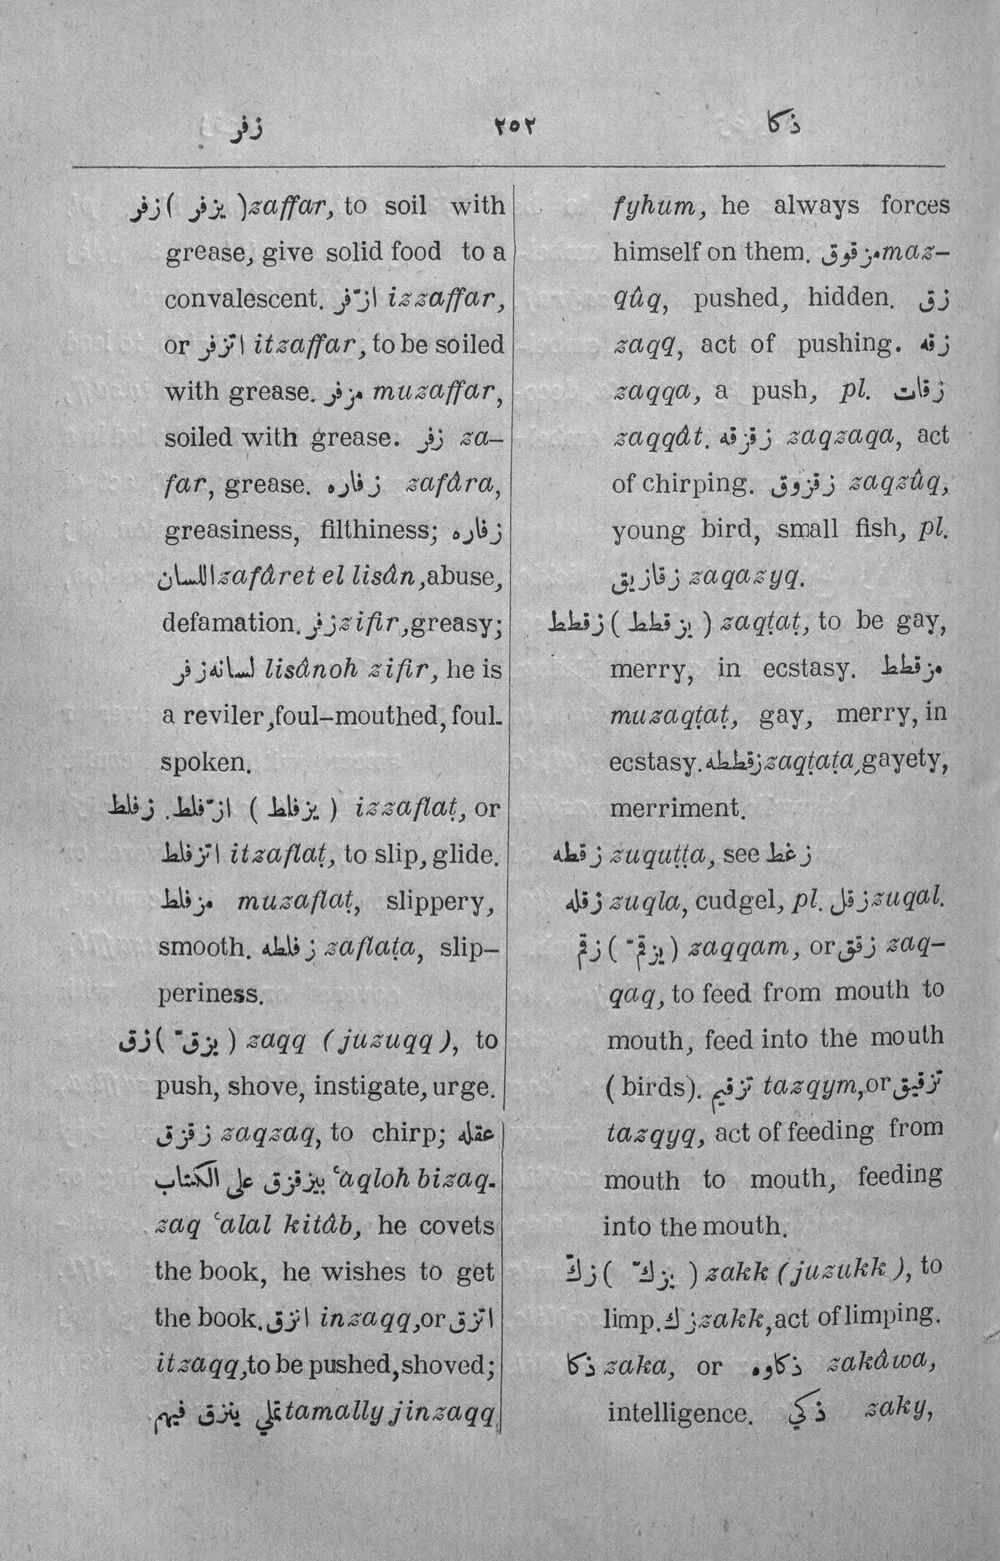 زفر ٢٥٢ ذكا
زفر ( يزفر ) zaffar, to soil with
grease, give solid food to a
convalescent. ازّفر izzaffar,
or اتزفر itzaffar, to be soiled
with grease. مزفر muzaffar,
soiled with grease. زفر za-
far, grease. زفاره zafâra,
greasiness, filthiness; زفاره
اللسان zafâret el lisân, abuse,
defamation. زفر zifir, greasy;
لسانه زفر lisânoh zifir, he is
a reviler, foul-mouthed, foul-
spoken.
زفلط. ازّفلط ( يزفلط ) izzaflaṭ, or
اتزفلط itzaflaṭ, to slip, glide.
مزفلط muzaflaṭ, slippery,
smooth. زفلطه zaflaṭa, slip-
periness.
زق ( يزقّ ) zaqq (juzuqq), to
push, shove, instigate, urge.
زقزق zaqzaq, to chirp; عقله
بيزقزق على الكتاب ʿaqloh bizaq-
zaq ʿalal kitâb, he covets
the book, he wishes to get
the book. انزق inzaqq, or اتزق
itzaqq, to be pushed, shoved;
تملي ينزق فيهم tamally jinzaqq
fyhum, he always forces
himself on them. مزقوق maz-
qûq, pushed, hidden. زق
zaqq, act of pushing. زقه
zaqqa, a push, pl. زقات
zaqqât. زقزقه zaqzaqa, act
of chirping. زقزوق zaqzûq,
young bird, small fish, pl.
زقازيق zaqazyq.
زقطط ( يزقطط ) zaqṭaṭ, to be gay,
merry, in ecstasy. مزقطط
muzaqṭaṭ, gay, merry, in
ecstasy. زقططه zaqṭaṭa, gayety,
merriment.
زقطه zuquṭṭa, see زغط
زقله zuqla, cudgel, pl. زقل zuqal.
زقم ( يزقّم ) zaqqam, or زقق zaq-
qaq, to feed from mouth to
mouth, feed into the mouth
(birds). تزقيم tazqym, or تزقيق
tazqyq, act of feeding from
mouth to mouth, feeding
into the mouth.
زكّ ( يزكّ ) zakk (juzukk), to
limp. زك zakk, act of limping.
ذكا zaka, or ذكاوه zakâwa,
intelligence. ذكي zaky,